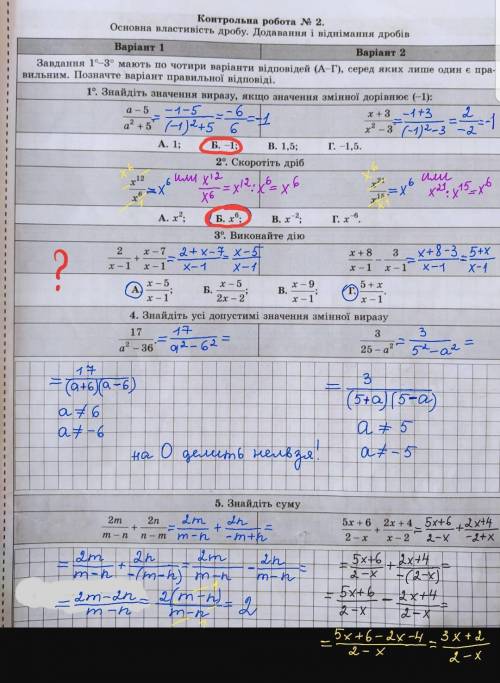 Контрольна робота № 2.
Основна властивість дробу. Додавання і віднімання дробів
Варіант 1 Варіант 2
Завдання 1°–3° мають по чотири варіанти відповідей (А–Г), серед яких лише один є пра-
вильним. Позначте варіант правильної відповіді.
1°. Знайдіть значення виразу, якщо значення змінної дорівнює (−1):
(a − 5)/(a² + 5) = (−1−5)/((−1)²+5) = −6/6 = −1 (x + 3)/(x² − 3) = (−1+3)/((−1)²−3) = 2/−2 = −1
А. 1; Б. −1; В. 1,5; Г. −1,5.
2°. Скоротіть дріб
x¹²/x⁶ = x⁶ или x¹²/x⁶ = x¹² : x⁶ = x⁶ x²¹/x¹⁵ = x⁶ или x²¹ : x¹⁵ = x⁶
А. x²; Б. x⁶; В. x⁻²; Г. x⁻⁶.
3°. Виконайте дію
? 2/(x − 1) + (x − 7)/(x − 1) = (2+x−7)/(x−1) = (x−5)/(x−1) (x + 8)/(x − 1) − 3/(x − 1) = (x+8−3)/(x−1) = (5+x)/(x−1)
А. (x − 5)/(x − 1); Б. (x − 5)/(2x − 2); В. (x − 9)/(x − 1); Г. (5 + x)/(x − 1).
4. Знайдіть усі допустимі значення змінної виразу
17/(a² − 36) = 17/(a² − 6²) = 3/(25 − a²) = 3/(5² − a²) =
= 17/((a+6)(a−6)) = 3/((5+a)(5−a))
a ≠ 6 a ≠ 5
a ≠ −6 a ≠ −5
на 0 делить нельзя!
5. Знайдіть суму
2m/(m − n) + 2n/(n − m) = 2m/(m−n) + 2n/(−m+n) = (5x + 6)/(2 − x) + (2x + 4)/(x − 2) = (5x+6)/(2−x) + (2x+4)/(−2+x)
= 2m/(m−n) + 2n/(−(m−n)) = 2m/(m−n) − 2n/(m−n) = = (5x+6)/(2−x) + (2x+4)/(−(2−x)) =
= (2m−2n)/(m−n) = 2(m−n)/(m−n) = 2 = (5x+6)/(2−x) − (2x+4)/(2−x) =
= (5x+6−2x−4)/(2−x) = (3x+2)/(2−x)